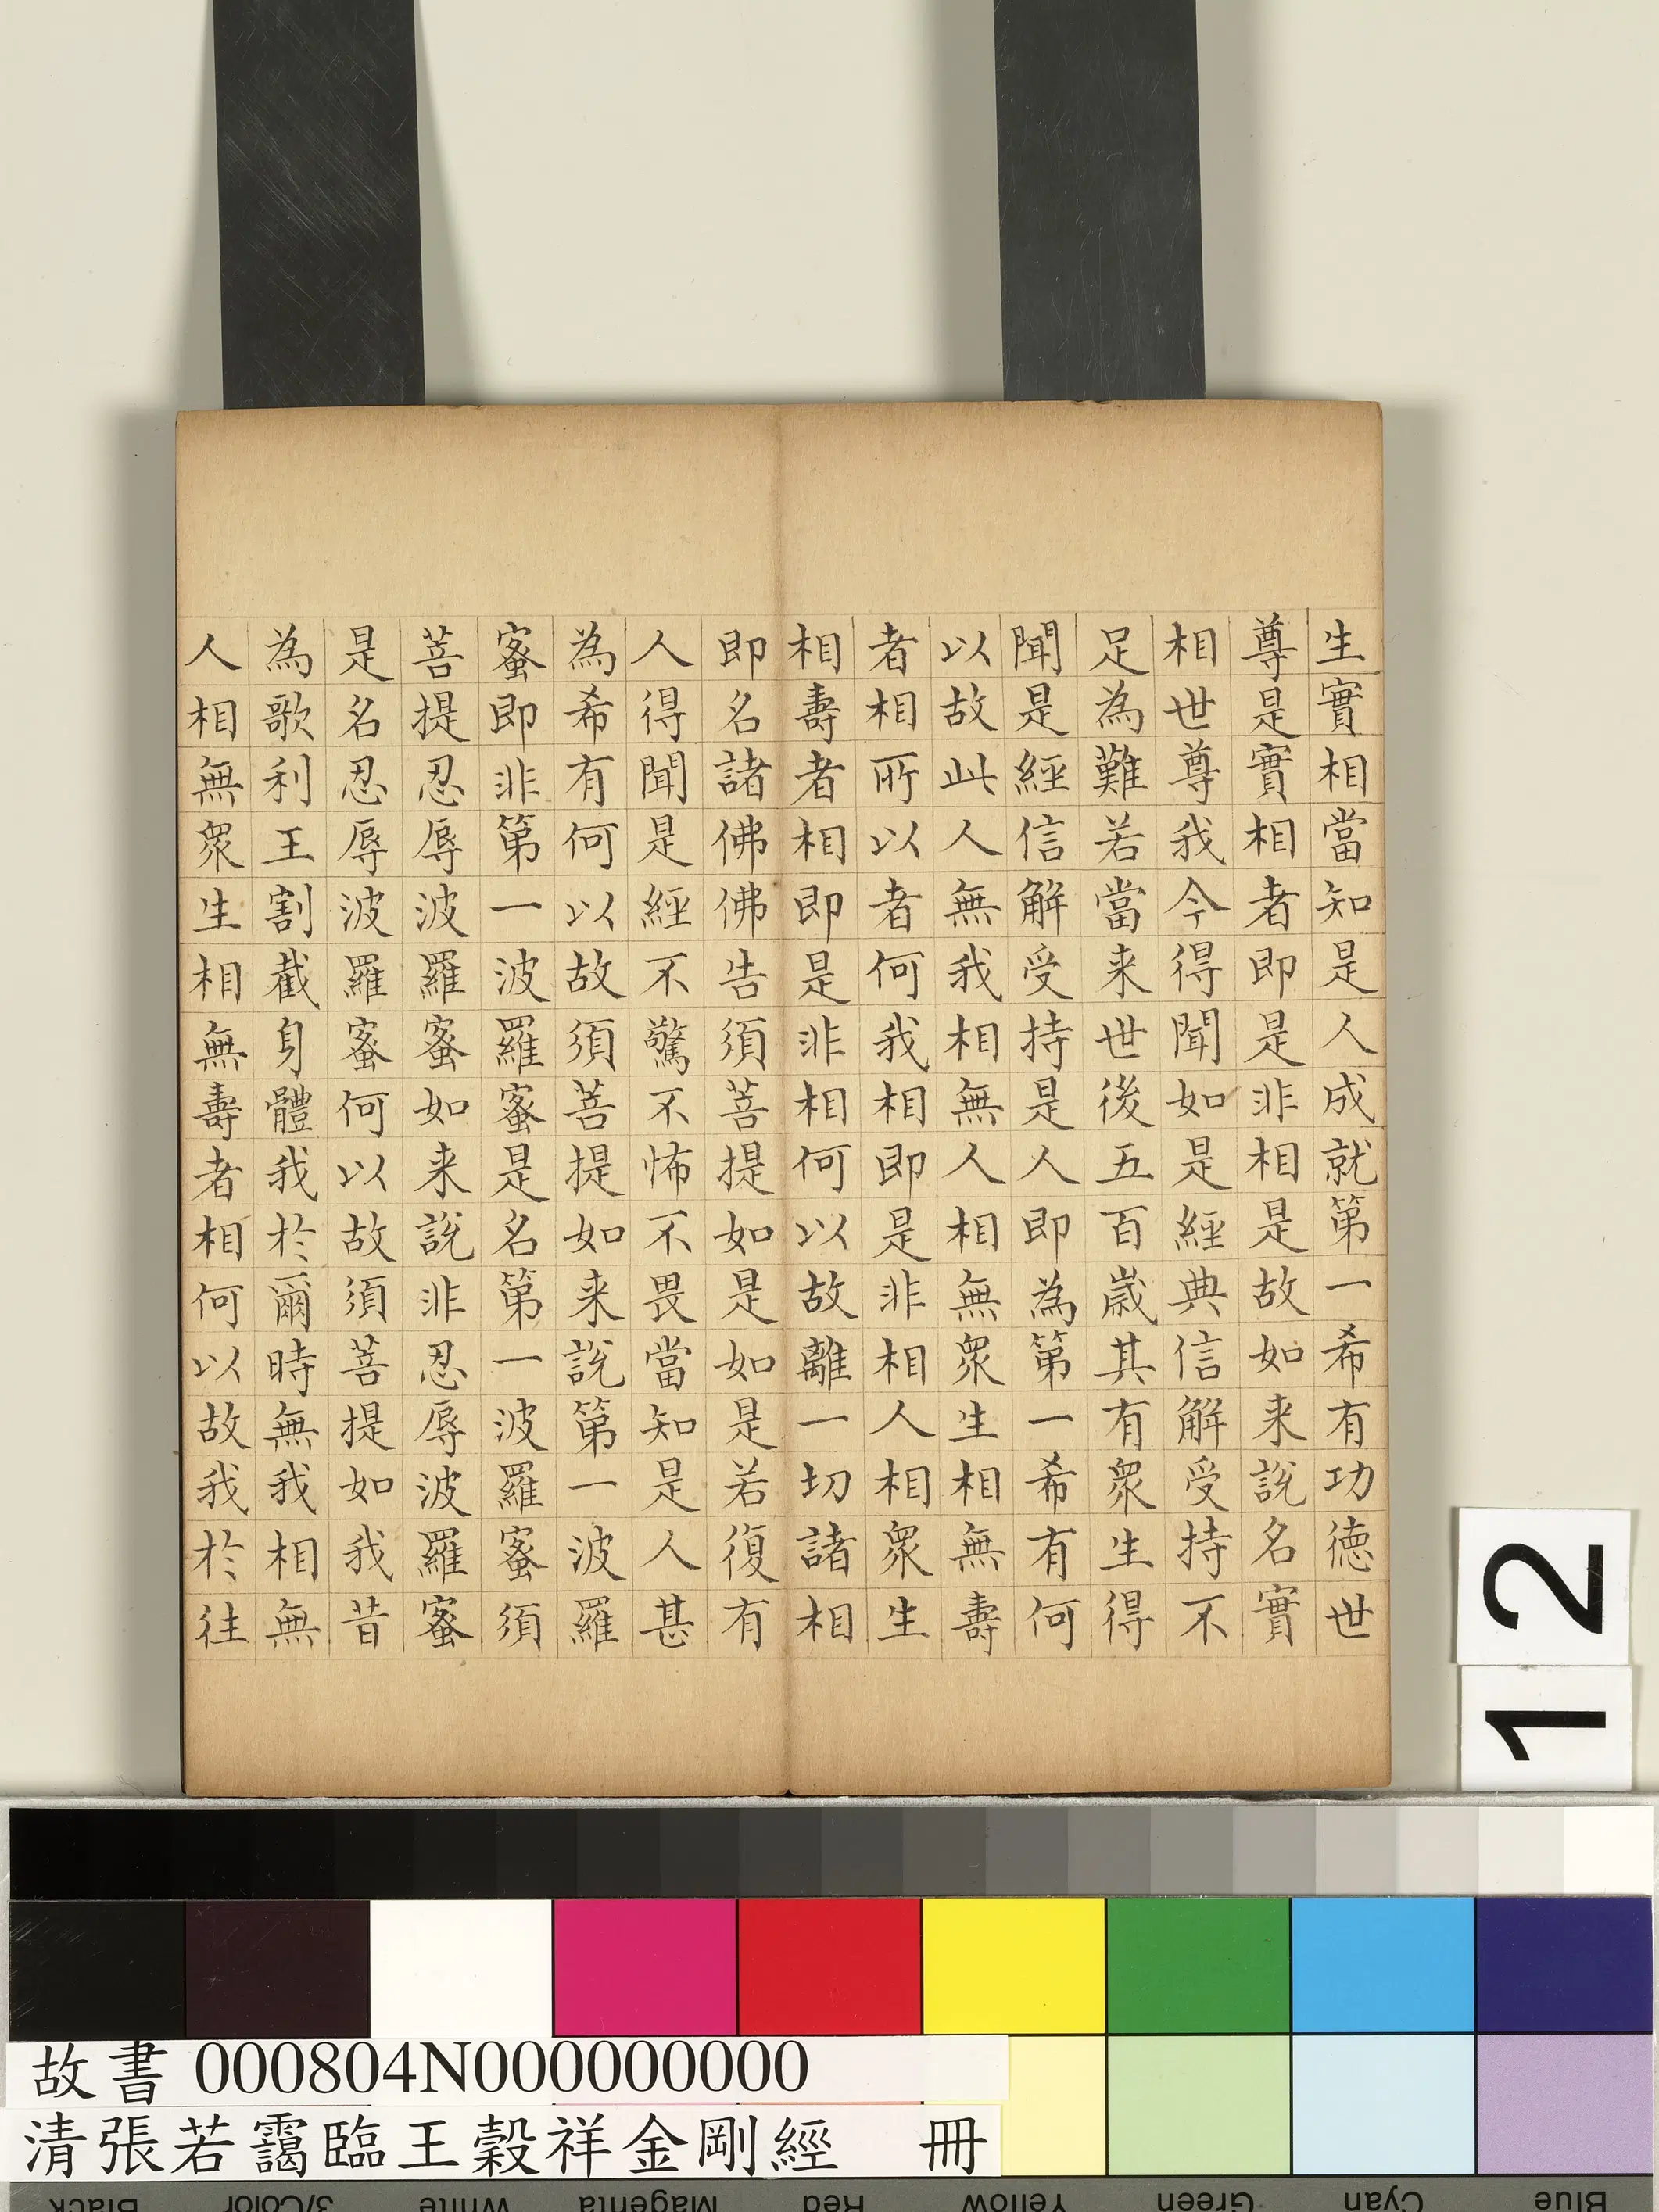 生實相當知是人成就第一希有功德世
尊是實相者即是非相是故如来說名實
相世尊我今得聞如是經典信解受持不
足為難若當来世後五百歲其有眾生得
聞是經信解受持是人即為第一希有何
以故此人無我相無人相無眾生相無壽
者相所以者何我相即是非相人相眾生
相壽者相即是非相何以故離一切諸相
即名諸佛佛告須菩提如是如是若復有
人得聞是經不驚不怖不畏當知是人甚
為希有何以故須菩提如来說第一波羅
蜜即非第一波羅蜜是名第一波羅蜜須
菩提忍辱波羅蜜如来說非忍辱波羅蜜
是名忍辱波羅蜜何以故須菩提如我昔
為歌利王割截身體我於爾時無我相無
人相無眾生相無壽者相何以故我於往
12
故書 000804N000000000
清張若靄臨王穀祥金剛經 冊
Black 3/Color White Magenta Red Yellow Green Cyan Blue